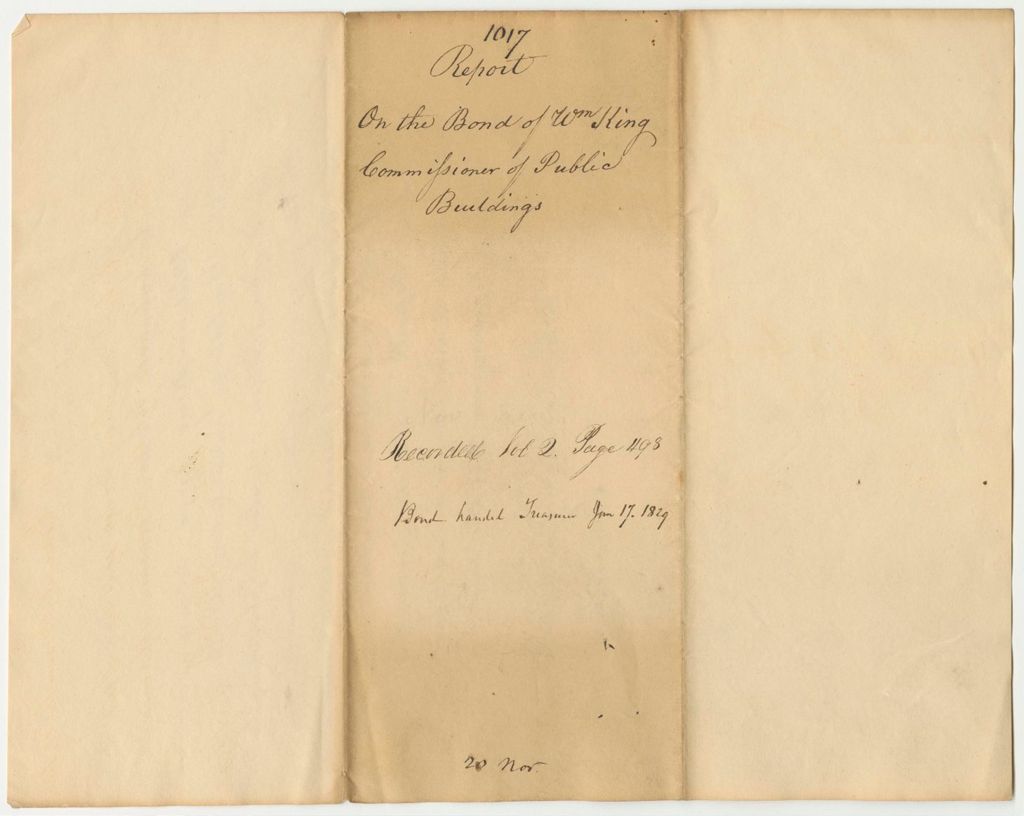 1017
Report
On the Bond of Wm King
Commissioner of Public
Buildings
Recorded Vol 2. Page 498
Bond handed Treasurer Jan 17. 1829
20 Nov.